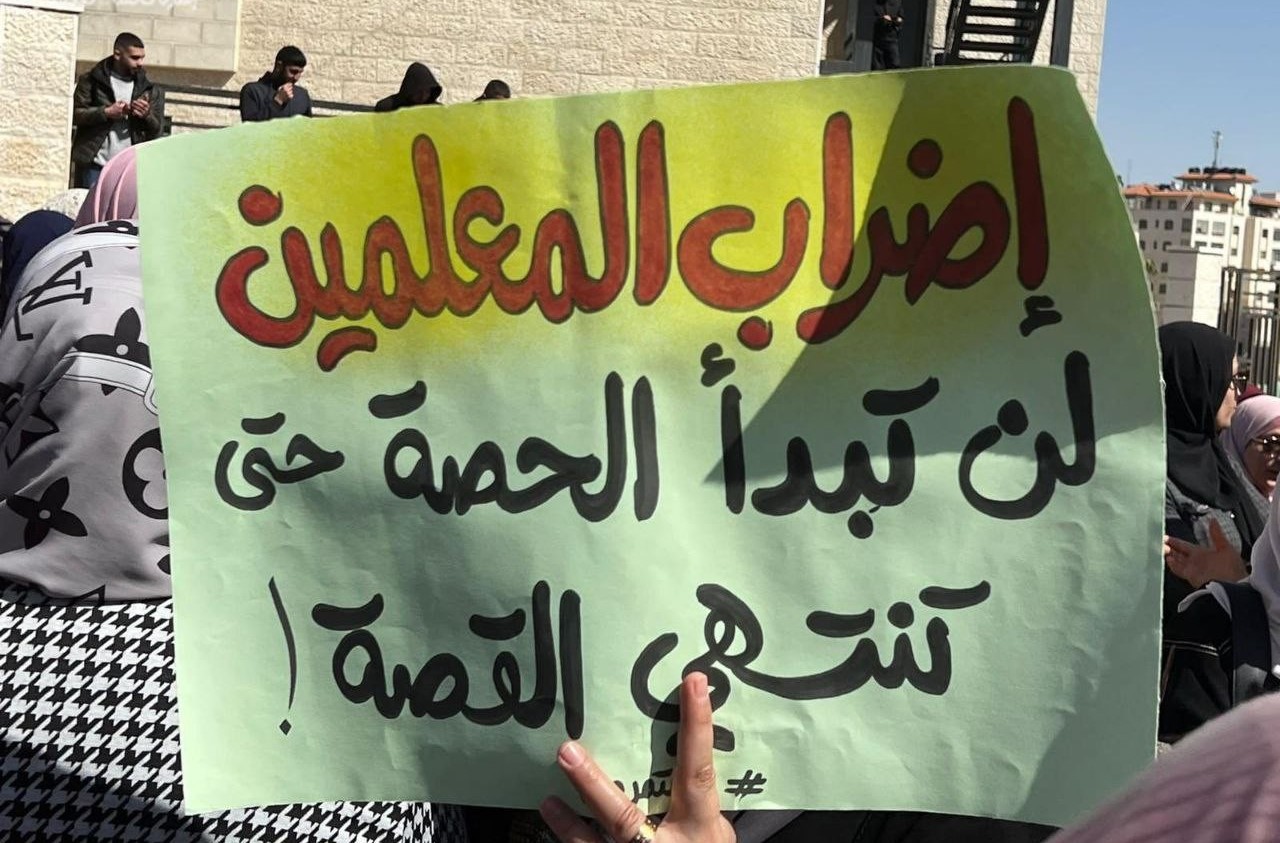 إضراب المعلمين
لن تبدأ الحصة حتى
تنتهي القصة!
#